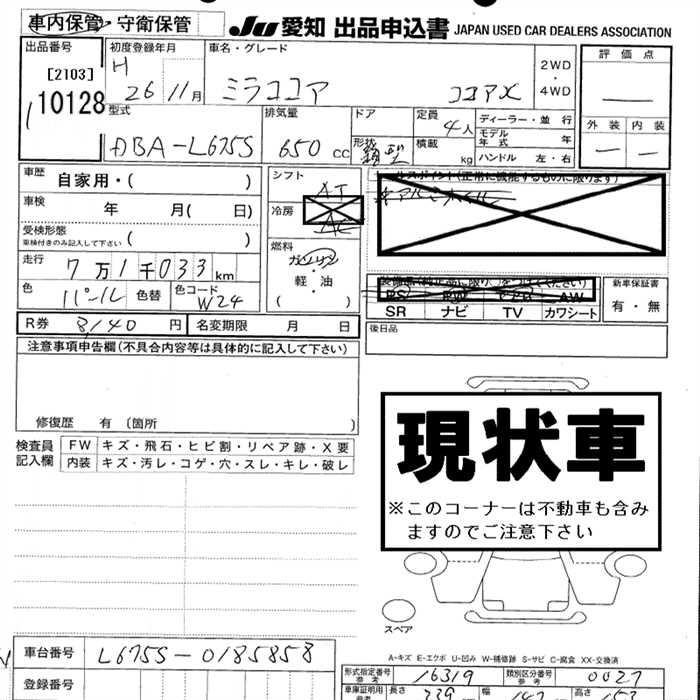 車内保管・守衛保管 JU 愛知 出品申込書 JAPAN USED CAR DEALERS ASSOCIATION
出品番号 初度登録年月 車名・グレード 2WD・4WD 評価点
[2103] H 26 11月 ミラココア ココアX
10128 外装 内装
型式 排気量 ドア 定員 4人 ディーラー・並行
DBA-L675S 650cc 形状 積載 kg モデル年式 年
ハンドル 左・右
車歴 自家用・( ) シフト AT
車検 年 月( 日) 冷房 AC
受検形態 ( )
車検付きのみ記入して下さい
燃料 ガソリン・軽油 ( )
走行 7万1千033km
色 パール 色替 色コード W24
SR ナビ TV カワシート
新車保証書 有・無
R券 8140円 名変期限 月 日
後日品
注意事項申告欄(不具合内容等は具体的に記入して下さい)
修復歴 有 〔箇所 〕
現状車
※このコーナーは不動車も含みますのでご注意下さい
検査員記入欄 FW キズ・飛石・ヒビ割・リペア跡・X要
内装 キズ・汚レ・コゲ・穴・スレ・キレ・破レ
スペア
A-キズ E-エクボ U-凹み W-補修跡 S-サビ C-腐食 XX-交換済
車台番号 L675S-0185858
登録番号
形式指定番号 参考 16319 類別区分番号 参考 0027
車庫証明用 長さ 339 幅 147 高さ 153